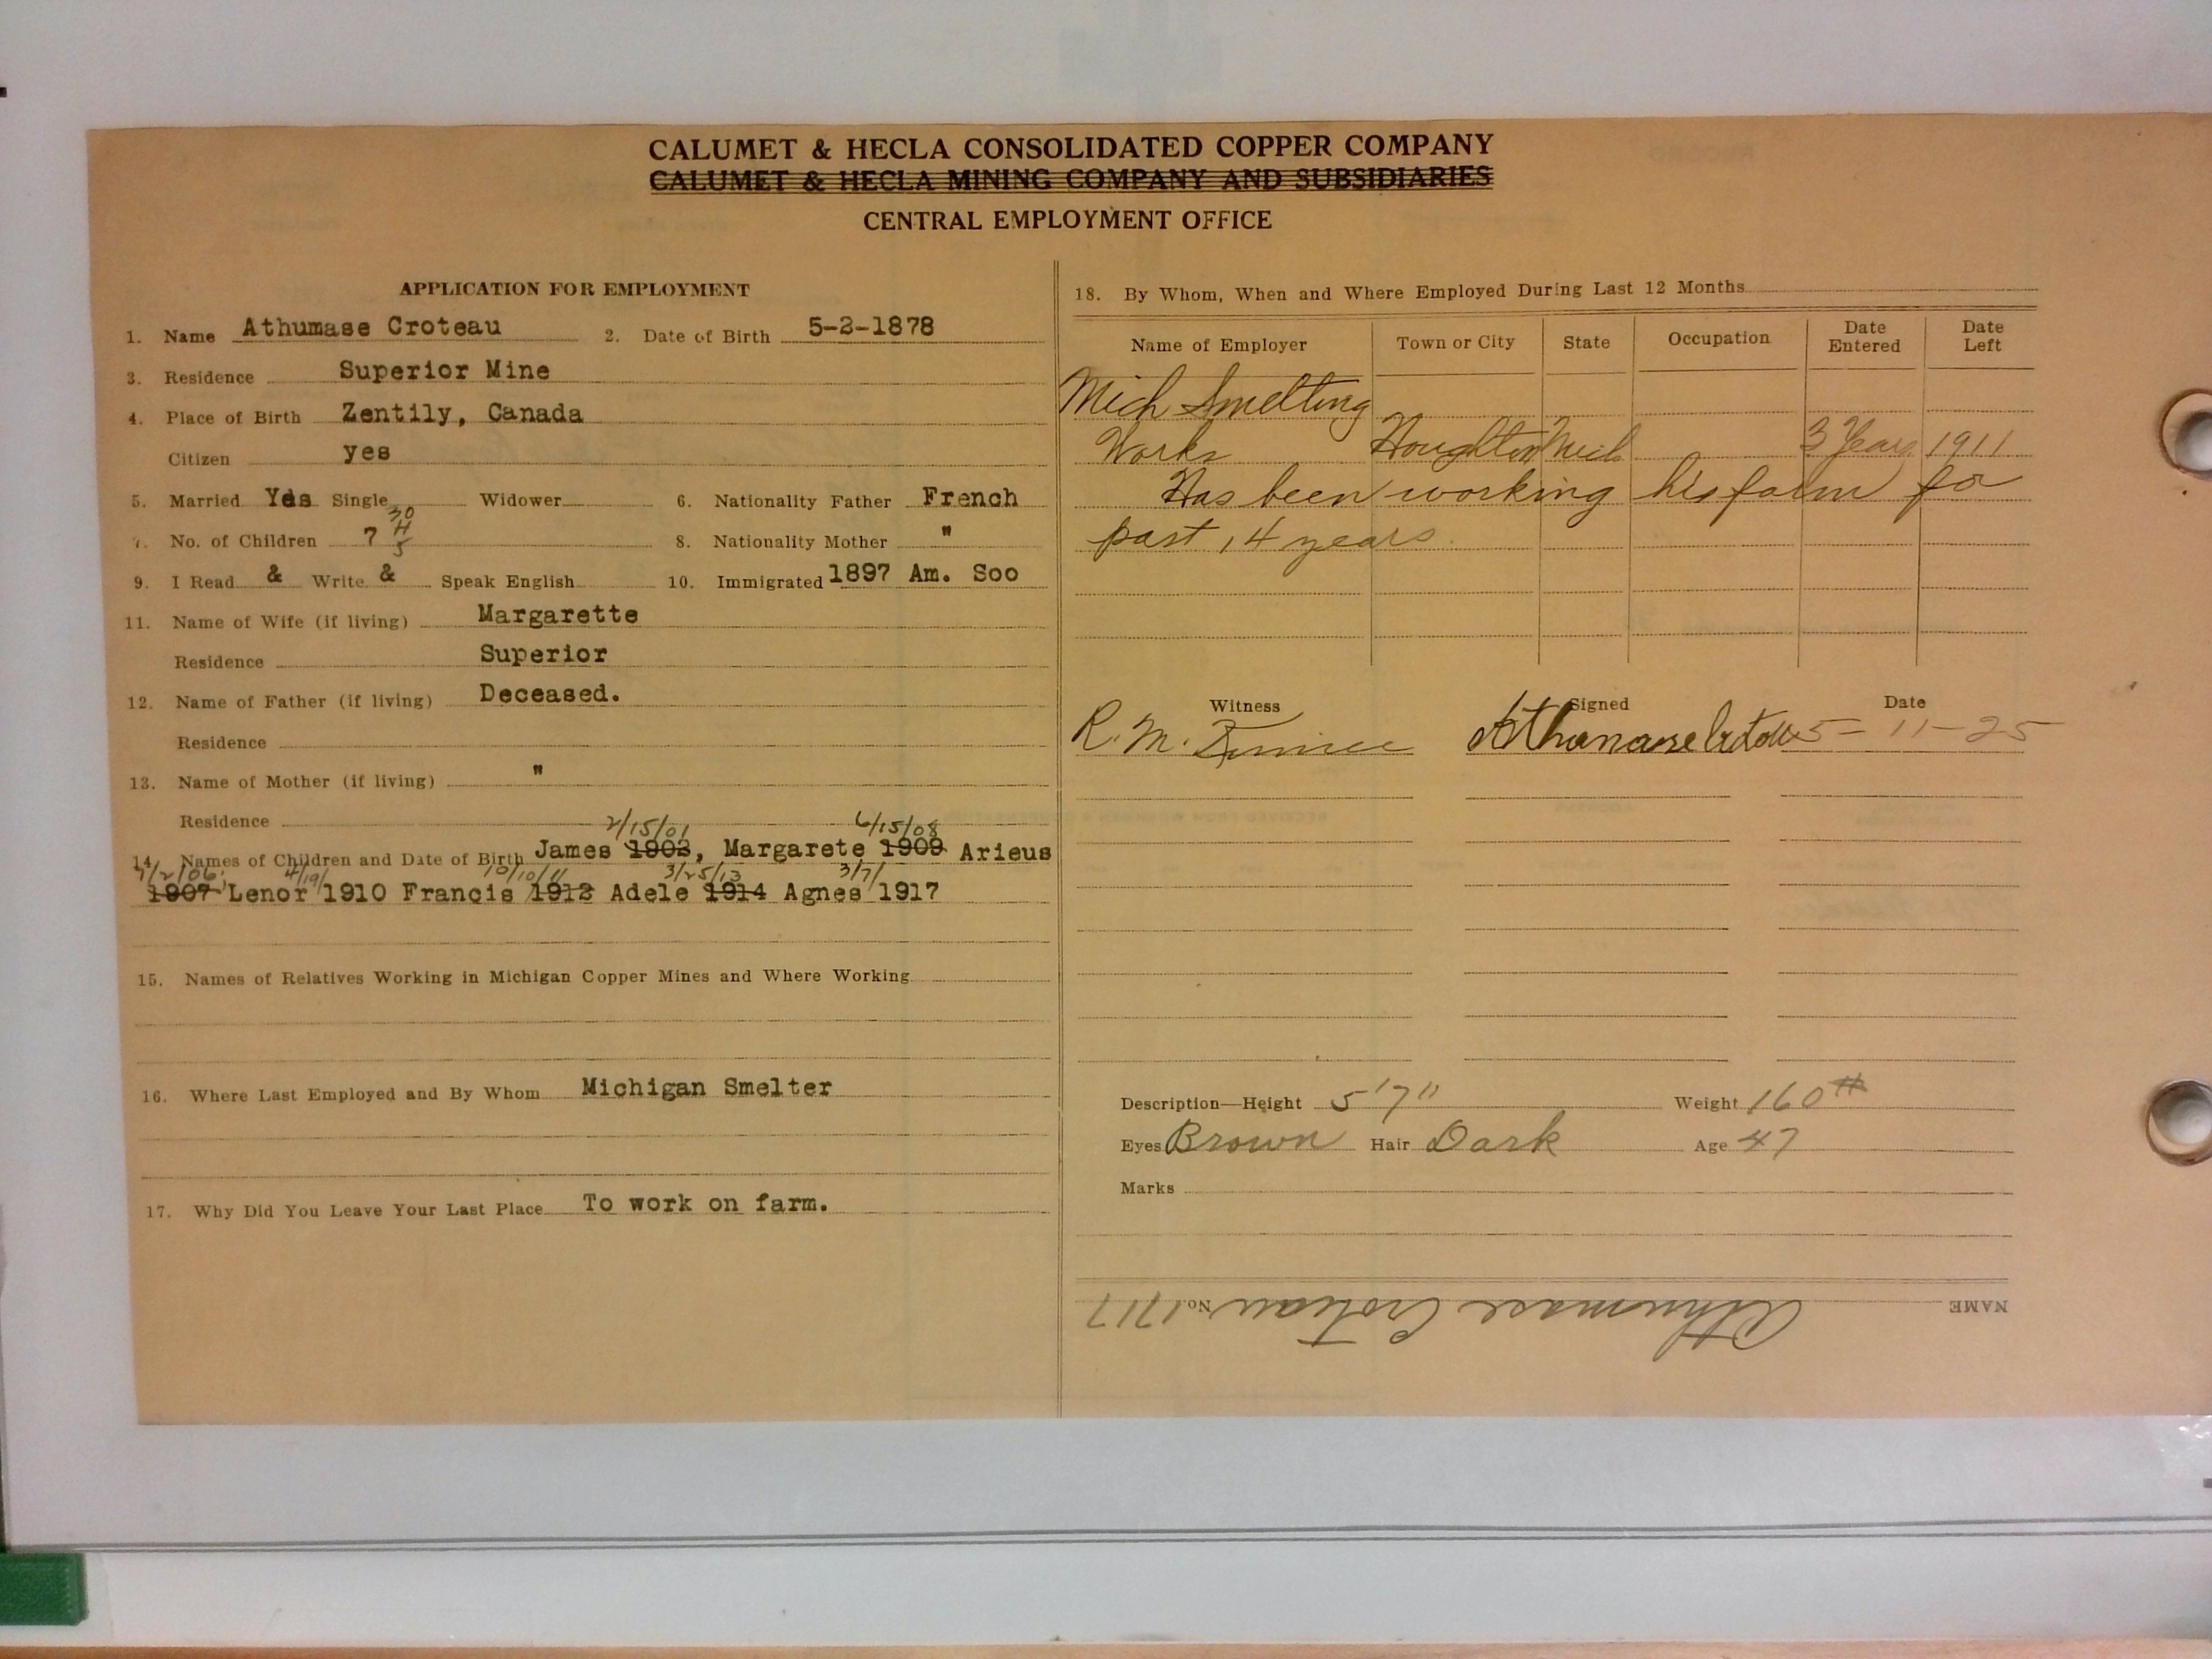 CALUMET & HECLA CONSOLIDATED COPPER COMPANY
CALUMET & HECLA MINING COMPANY AND SUBSIDIARIES
CENTRAL EMPLOYMENT OFFICE
APPLICATION FOR EMPLOYMENT
1. Name Athumase Croteau 2. Date of Birth 5-2-1878
3. Residence Superior Mine
4. Place of Birth Zentily, Canada
Citizen yes
5. Married Yes Single Widower 6. Nationality Father French
30
7. No. of Children 7 H 8. Nationality Mother "
5
9. I Read & Write & Speak English 10. Immigrated 1897 Am. Soo
11. Name of Wife (if living) Margarette
Residence Superior
12. Name of Father (if living) Deceased.
Residence
13. Name of Mother (if living) "
Residence
2/15/01 6/15/08
14. Names of Children and Date of Birth James 1903, Margarete 1909 Arieus
7/2/06 4/19/ 10/10/11 3/25/13 3/7/
1907 Lenor 1910 Francis 1912 Adele 1914 Agnes 1917
15. Names of Relatives Working in Michigan Copper Mines and Where Working
16. Where Last Employed and By Whom Michigan Smelter
17. Why Did You Leave Your Last Place To work on farm.
18. By Whom, When and Where Employed During Last 12 Months
Name of Employer Town or City State Occupation Date Entered Date Left
Mich Smelting
Works Houghton Mich 3 Years 1911
Has been working his farm for
past 14 years.
Witness Signed Date
R. M. Athanase 5-11-25
Description—Height 5'7" Weight 160#
Eyes Brown Hair Dark Age 47
Marks
NAME Athumase Croteau No. 1717